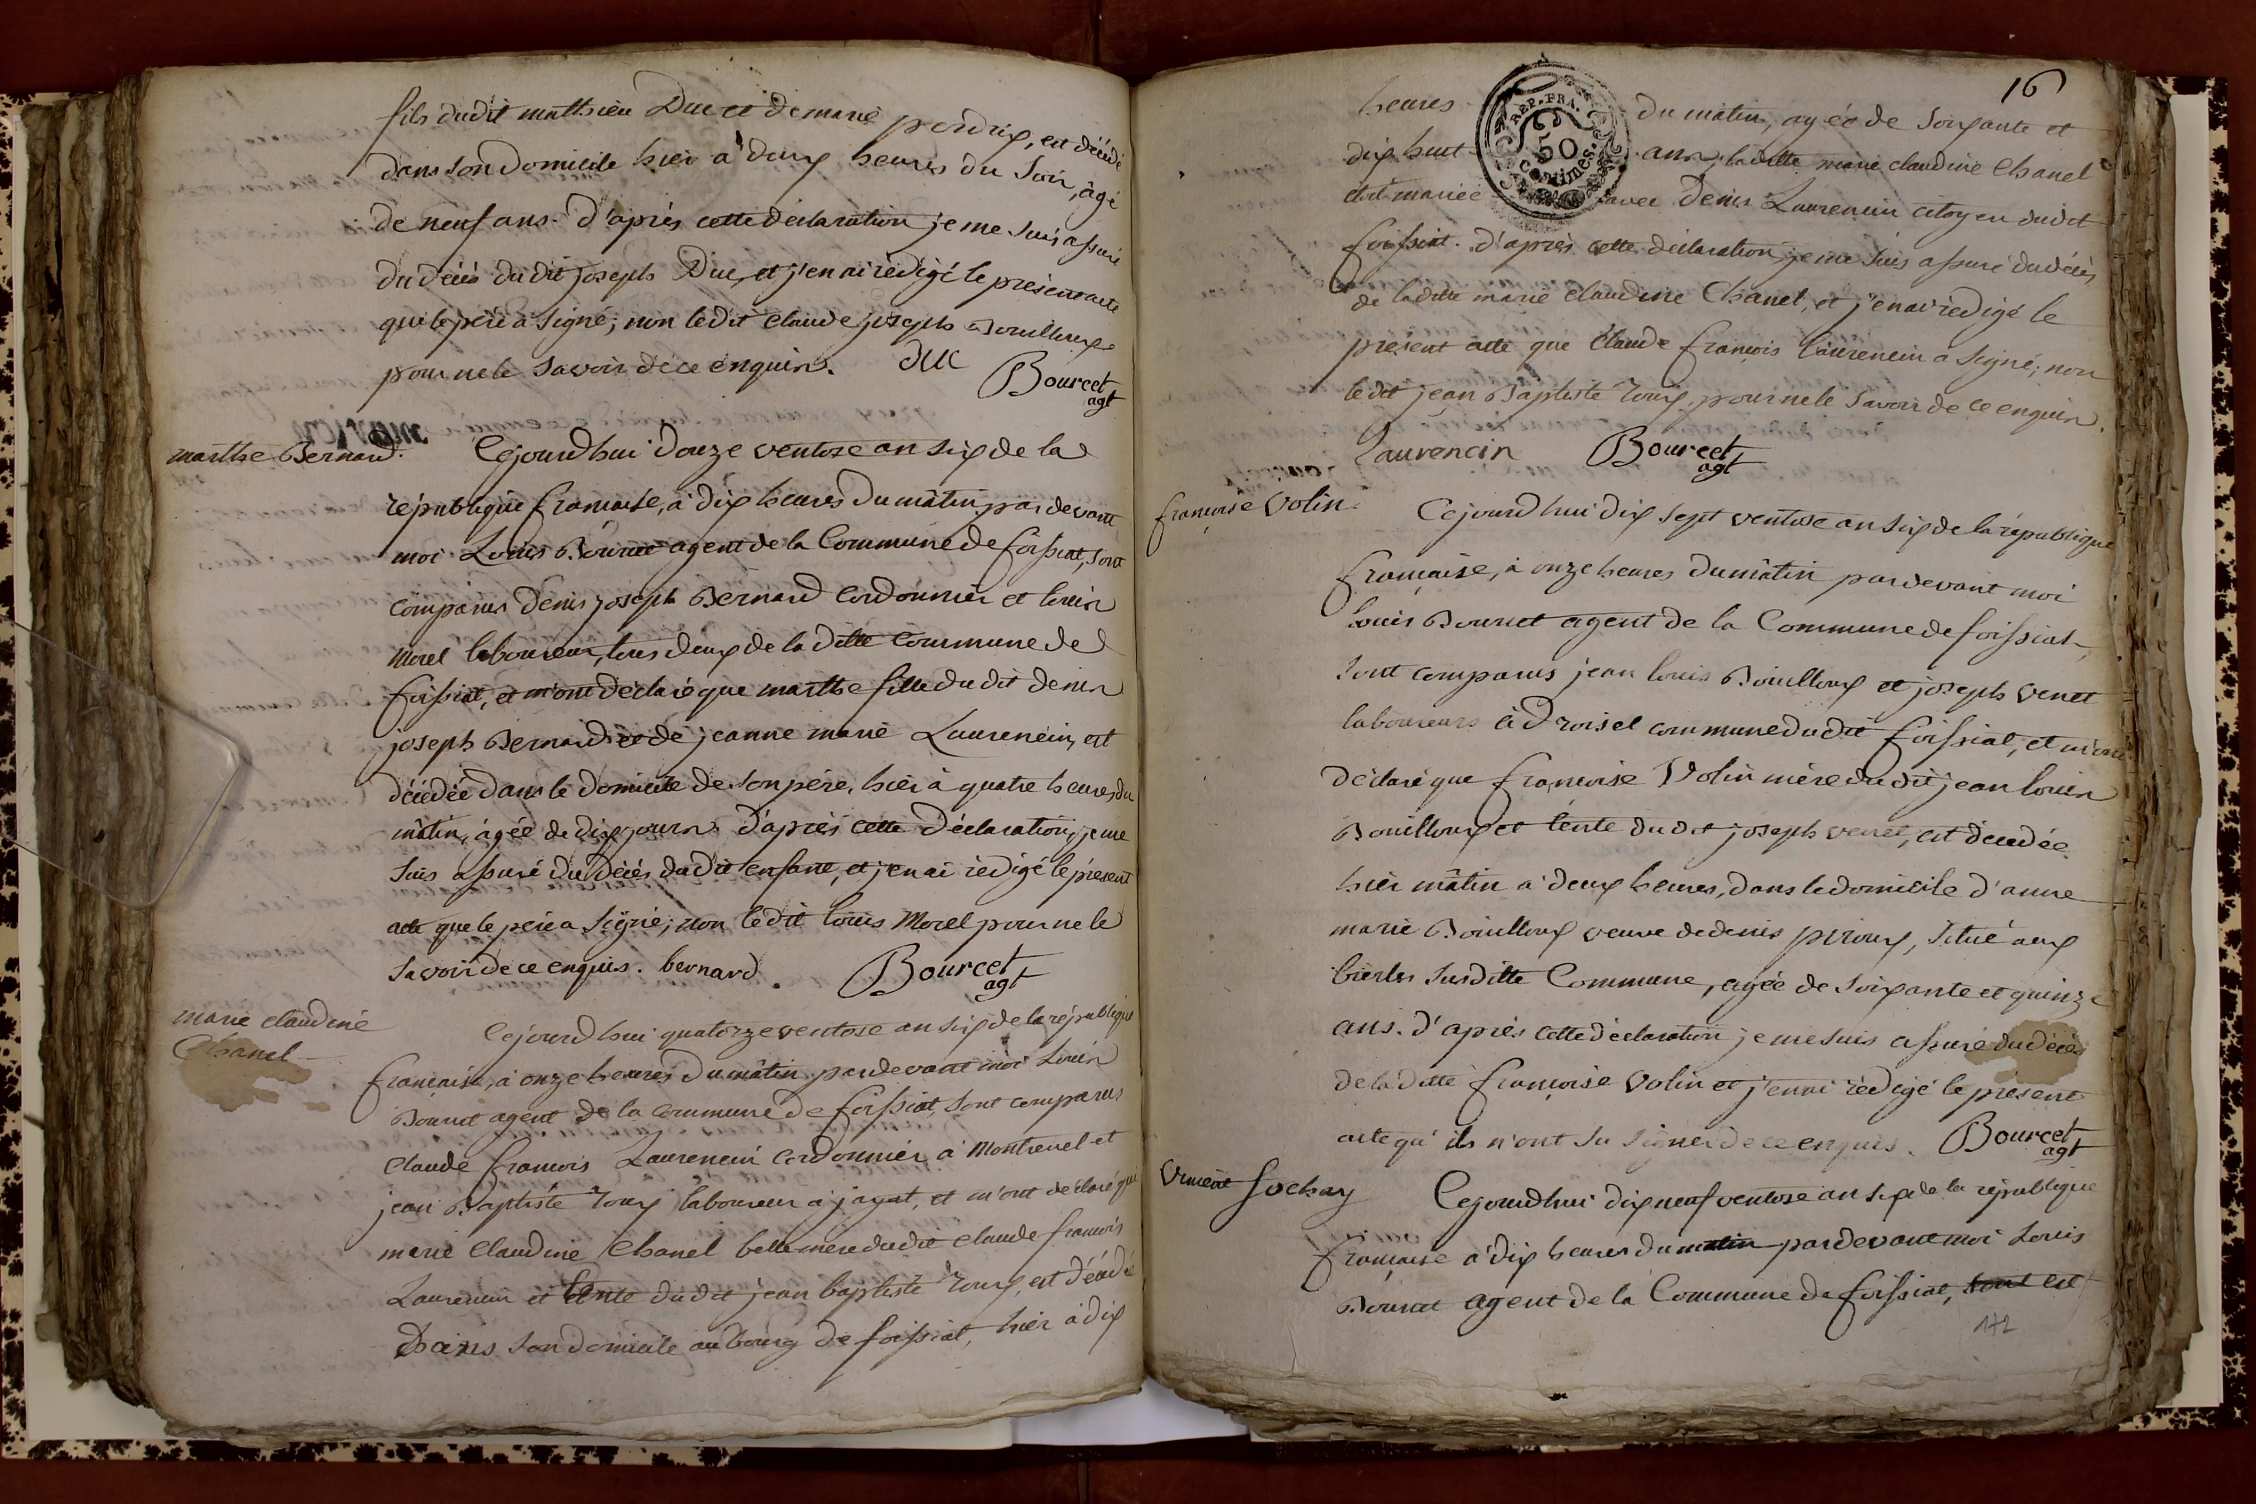 fils dudit mathieu Duc et de marie perdrix, est décédé
dans son domicile hier à deux heures du soir, âgé
de neuf ans. d'après cette déclaration je me suis assuré
du décès dudit joseph Duc, et j'en ai rédigé le présent acte
que le père a signé; non ledit claude joseph Bouilloux
pour ne le savoir de ce enquis. duc
Bourcet
agt
marthe Bernard.
Cejourdhui douze ventose an six de la
république française, à dix heures du mâtin, par devant
moi Louis Bourcet agent de la Commune de foissiat, sont
comparus denis joseph Bernard cordonnier et louis
Morel laboureur, tous deux de la ditte commune de
foissiat, et m'ont déclaré que marthe fille du dit denis
joseph Bernard et de jeanne marie Laurencin, est
décédée dans le domicile de son père, hier à quatre heures du
mâtin, âgée de dix jours. d'après cette déclaration, je me
suis assuré du décès dudit enfant, et j'en ai rédigé le présent
acte que le père a signé; non ledit louis Morel pour ne le
savoir de ce enquis. bernard. Bourcet
agt
marie claudine
Chanel
Cejourdhui quatorze ventose an six de la république
française, à onze heures du mâtin pardevant moi Louis
Bourcet agent de la commune de foissiat, sont comparus
claude françois Laurencin cordonnier à Montrevel et
jean Baptiste roux laboureur à jayat, et m'ont déclaré que
marie claudine Chanel belle mère dudit claude françois
Laurencin et tente dudit jean baptiste roux, est décédée
dans son domicile au bourg de foissiat, hier à dix
16
heures du mâtin, agée de soixante et
REP. FRA.
50
Centimes.
dix huit ans; laditte marie claudine Chanel
étoit mariée avec denis Laurencin citoyen dudit
foissiat. d'après cette déclaration je me suis assuré du décès
de laditte marie claudine Chanel, et j'en ai rédigé le
présent acte que claude françois Laurencin a signé; non
ledit jean Baptiste roux, pour ne le savoir de ce enquis.
Laurencin Bourcet
agt
françoise Volin.
Cejourdhui dix sept ventose an six de la république
française, à onze heures du mâtin pardevant moi
louis Bourcet agent de la Commune de foissiat,
sont comparus jean louis Bouilloux et joseph venet
laboureurs à droisel commune dudit foissiat, et m'ont
déclaré que françoise Volin mère dudit jean louis
Bouilloux et tente dudit joseph venet, est décédée
hier mâtin à deux heures, dans le domicile d'anne
marie Bouilloux veuve de denis piroux, situé aux
susditte Commune, agée de soixante et quinze
ans. d'après cette déclaration je me suis assuré du décès
de la ditte françoise Volin et j'en ai rédigé le présent
acte qu'ils n'ont su signer de ce enquis. Bourcet
agt
Vincent sochay
Cejourdhui dix neuf ventose an six de la république
française à dix heures du matin pardevant moi Louis
Bourcet agent de la Commune de foissiat, sont est
172